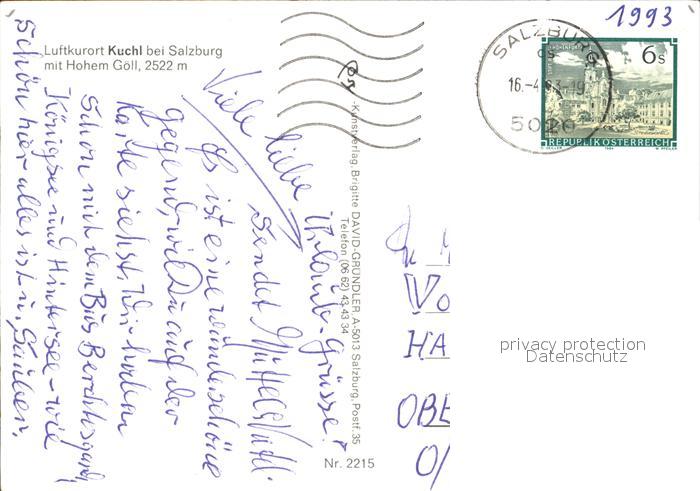 1993
Luftkurort Kuchl bei Salzburg
mit Hohem Göll, 2522 m
SALZBURG
16.-4.
5020
6 S
REPUBLIK ÖSTERREICH
Viele liebe Urlaubs-Grüsse!
sendet
Es ist eine wunderschöne
gegend, wie Du auf der
Karte siehst. Wir waren
Schon mit dem Bus Berchtesgaden,
Königsee und Hintersee - wie
Schön hier alles ist u. sauber.
-Kunstverlag, Brigitte DAVID-GRÜNDLER, A-5013 Salzburg, Postf. 35
Telefon (06 62) 43 43 34
Nr. 2215
HA
OBE
privacy protection
Datenschutz